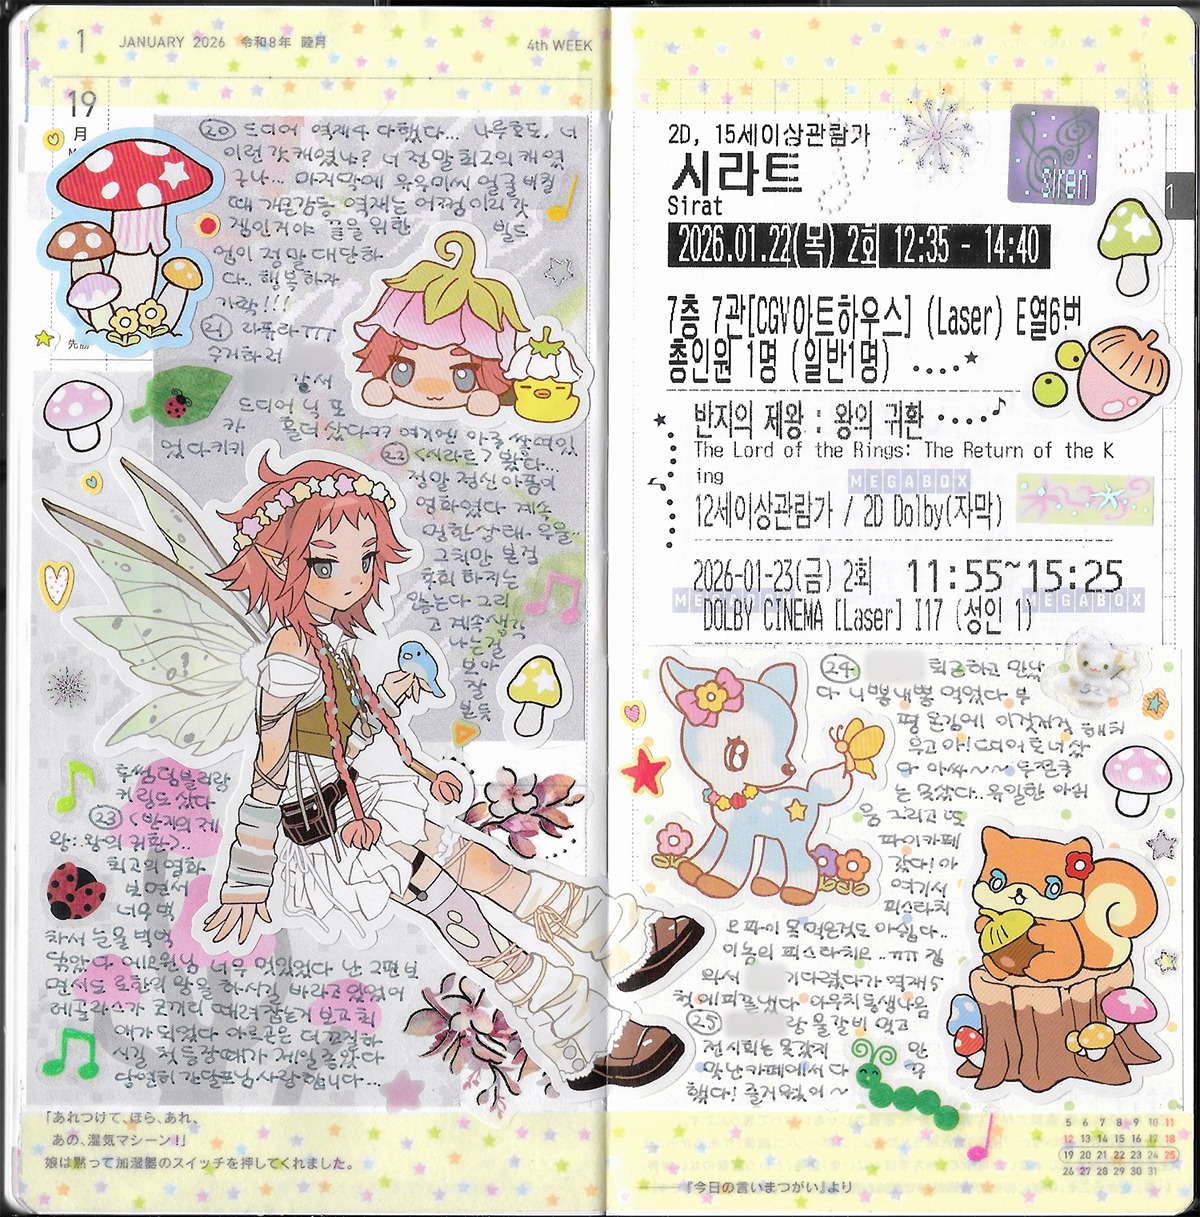 1 JANUARY 2026 令和8年 睦月
4th WEEK
19
月
20 드디어 역재4 다 했다... 나루호도, 너
이런 갓캐였냐? 너 정말 최고의 캐였
구나... 마지막에 유우미씨 얼굴 바뀔
때 개큰감동 역재는 어쩜 이리 갓
겜인거야 끝을 위한 빌드
업이 정말 대단하
다.. 행복하자
가락!!!
21 라퓨타 TTT
우겨하러
강서
드디어 닉 포
카 홀더 샀다ㅋㅋ 여기엔 아주 쌀 여있
었다키키
22 <시라트> 봤다...
정말 정신 아픔이
영화였다 계속
멍한상태.. 우울..
그치만 본걸
후회 하지는
않는다 그리
고 계속 생각
나는걸
보아
잘
본듯
후쌈덤블러랑
커링도 샀다
23 <반지의 제
왕: 왕의 귀환>..
최고의 영화
보면서
너무 벅
차서 눈물 벅벅
닦았다 에오윈님 너무 멋있었다 난 2편 보
면서도 로한의 왕을 하시길 바라고 있었어
레골라스가 코끼리 때려잡는거 보고 최
애가 되었다 아르곤은 더 고정하
시길 첫 등장때가 제일 좋았다
당연히 간달프님 사랑합니다...
「あれつけて、ほら、あれ、
あの、湿気マシーン！」
娘は黙って加湿器のスイッチを押してくれました。
2D, 15세이상관람가
시라트
Sirat
siren
2026.01.22(목) 2회 12:35 - 14:40
1
7층 7관[CGV아트하우스] (Laser) E열6번
총인원 1명 (일반1명)
반지의 제왕 : 왕의 귀환
The Lord of the Rings: The Return of the K
ing
MEGABOX
12세이상관람가 / 2D Dolby(자막)
2026-01-23(금) 2회 11:55~15:25
MEGABOX
MEGABOX
DOLBY CINEMA [Laser] I17 (성인 1)
24 퇴근하고 만났
다 니뽕내뽕 먹었다 부
평 온김에 이것저것 해치
우고 아! 드디어 토너 샀
다 아싸~~ 두쫀쿠
는 못샀다.. 유일한 아쉬
움 그리고 또
파이카페
갔다! 아
여기서
피스타치
오파이 못 먹은것도 아쉽다..
이놈의 피스타치오.. ㅠㅠ 집
와서 기다렸다가 역재5
첫 에피 끝냈다 아우치 동생나음
25 랑 물갈비 먹고
전시회는 못갔지만
맛난 카페에서 다
했다! 즐거웠어~
5 6 7 8 9 10 11
12 13 14 15 16 17 18
19 20 21 22 23 24 25
26 27 28 29 30 31
『今日の言いまつがい』より